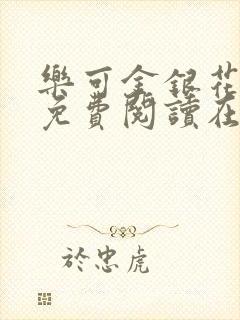 樂可金銀花
免費閱讀在
於忠虎